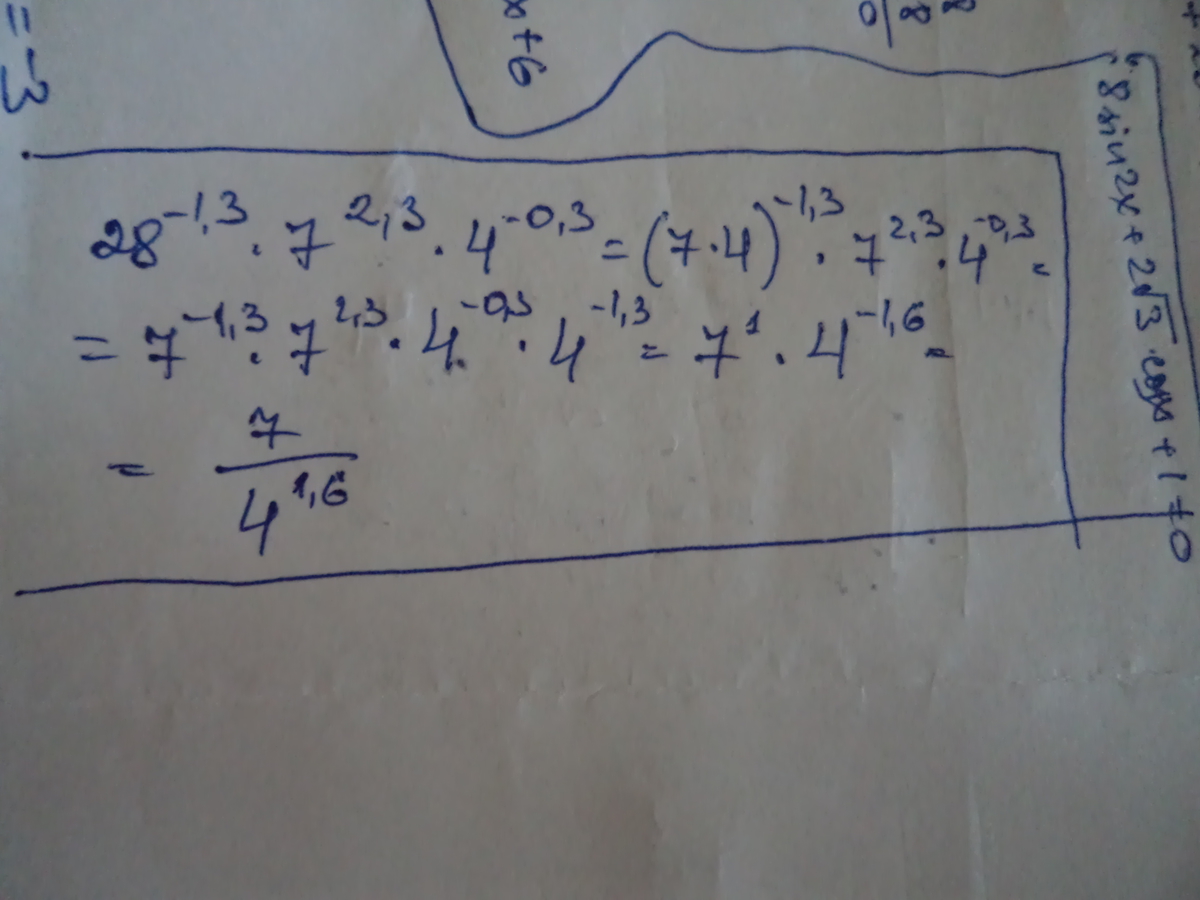 = -3
x+6
8
0
8
8 sin 2x + 2√3 · cosx + 1 = 0
28^{-1,3} · 7^{2,3} · 4^{-0,3} = (7·4)^{-1,3} · 7^{2,3} · 4^{-0,3} =
= 7^{-1,3} · 7^{2,3} · 4^{-0,3} · 4^{-1,3} = 7^{1} · 4^{-1,6} =
= \frac{7}{4^{1,6}}